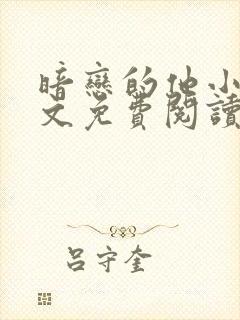 暗戀的他小
文免費閱讀
呂守奎